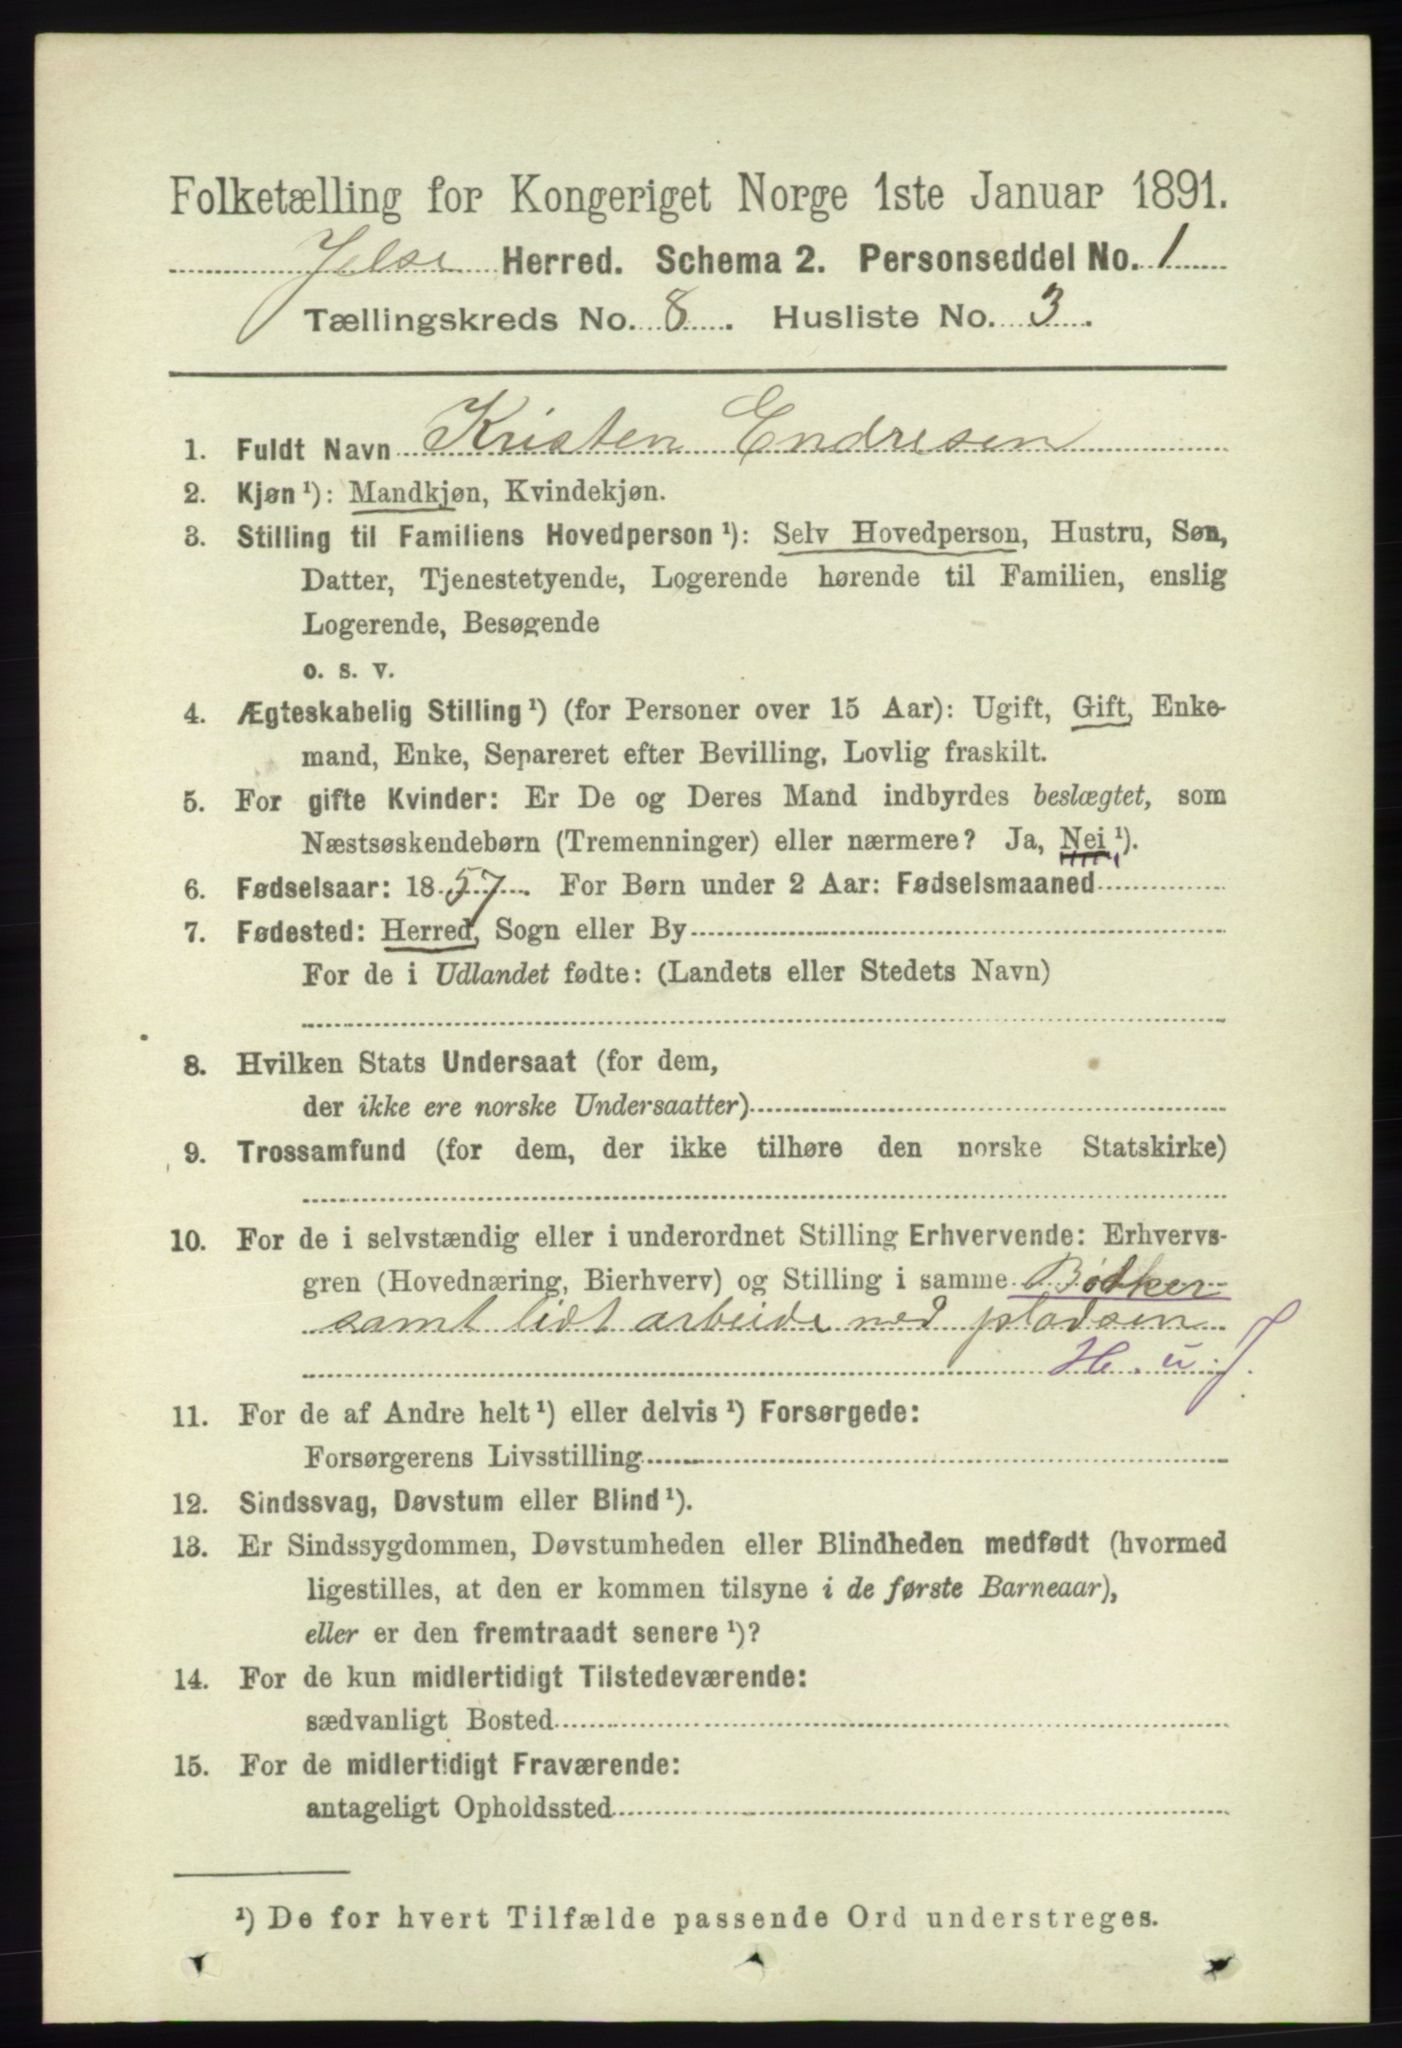 Folketælling for Kongeriget Norge 1ste Januar 1891.
Jelse Herred. Schema 2. Personseddel No. 1
Tællingskreds No. 8. Husliste No. 3.
1. Fuldt Navn Kristen Endresen
2. Kjøn¹): Mandkjøn, Kvindekjøn.
3. Stilling til Familiens Hovedperson¹): Selv Hovedperson, Hustru, Søn,
Datter, Tjenestetyende, Logerende hørende til Familien, enslig
Logerende, Besøgende
o. s. v.
4. Ægteskabelig Stilling¹) (for Personer over 15 Aar): Ugift, Gift, Enke-
mand, Enke, Separeret efter Bevilling, Lovlig fraskilt.
5. For gifte Kvinder: Er De og Deres Mand indbyrdes beslægtet, som
Næstsøskendebørn (Tremenninger) eller nærmere? Ja, Nei¹).
6. Fødselsaar: 1857. For Børn under 2 Aar: Fødselsmaaned
7. Fødested: Herred, Sogn eller By
For de i Udlandet fødte: (Landets eller Stedets Navn)
8. Hvilken Stats Undersaat (for dem,
der ikke ere norske Undersaatter)
9. Trossamfund (for dem, der ikke tilhøre den norske Statskirke)
10. For de i selvstændig eller i underordnet Stilling Erhvervende: Erhvervs-
gren (Hovednæring, Bierhverv) og Stilling i samme Bødker
samt lidt arbeide med pladsen
H. u. J.
11. For de af Andre helt¹) eller delvis¹) Forsørgede:
Forsørgerens Livsstilling
12. Sindssvag, Døvstum eller Blind¹).
13. Er Sindssygdommen, Døvstumheden eller Blindheden medfødt (hvormed
ligestilles, at den er kommen tilsyne i de første Barneaar),
eller er den fremtraadt senere¹)?
14. For de kun midlertidigt Tilstedeværende:
sædvanligt Bosted
15. For de midlertidigt Fraværende:
antageligt Opholdssted
¹) De for hvert Tilfælde passende Ord understreges.